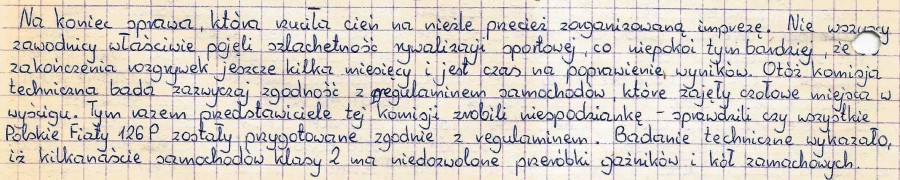 Na koniec sprawa, która rzuciła cień na nieźle przecież zorganizowaną imprezę. Nie wszyscy
zawodnicy właściwie pojęli szlachetność rywalizacji sportowej, co niepokoi tym bardziej, że
zakończenia rozgrywek jeszcze kilka miesięcy i jest czas na poprawienie wyników. Otóż komisja
techniczna bada zazwyczaj zgodność z regulaminem samochodów, które zajęły czołowe miejsca w
wyścigu. Tym razem przedstawiciele tej komisji zrobili niespodziankę - sprawdzili czy wszystkie
Polskie Fiaty 126P zostały przygotowane zgodnie z regulaminem. Badanie techniczne wykazało,
iż kilkanaście samochodów klasy 2 ma niedozwolone przeróbki gaźników i kół zamachowych.